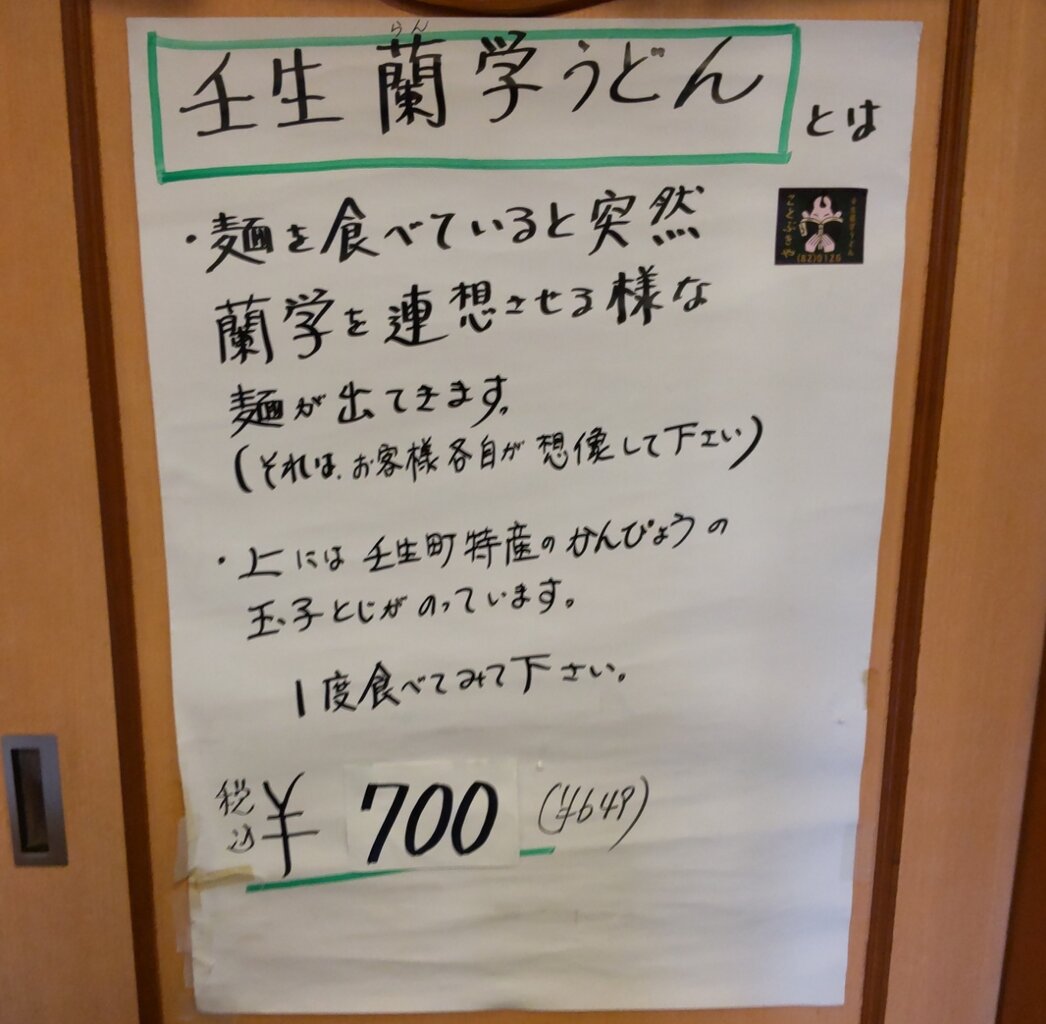 らん
壬生蘭学うどん とは
・麺を食べていると突然
蘭学を連想させる様な
麺が出てきます。
(それは、お客様各自が想像して下さい)
・上には壬生町特産のかんぴょうの
玉子とじがのっています。
1度食べてみて下さい。
税込 ¥700 (¥649)
ことぶきや
(82)0126